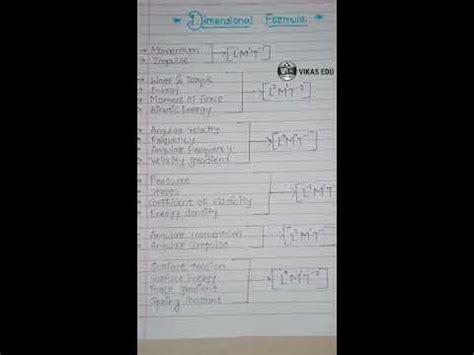 Dimensional Formula
Momentum
Impulse
[L M¹ T⁻¹]
VIKAS EDU
Work & Torque
Energy
Moment of force
Kinetic Energy
[L² M¹ T⁻²]
Angular velocity
Frequency
Angular frequency
Velocity gradient
[L⁰ M⁰ T⁻¹]
Pressure
Stress
Coefficient of elasticity
Energy density
[L⁻¹ M¹ T⁻²]
Angular momentum
Angular impulse
[L² M¹ T⁻¹]
Surface tension
Surface Energy
Force gradient
Spring constant
[L⁰ M¹ T⁻²]